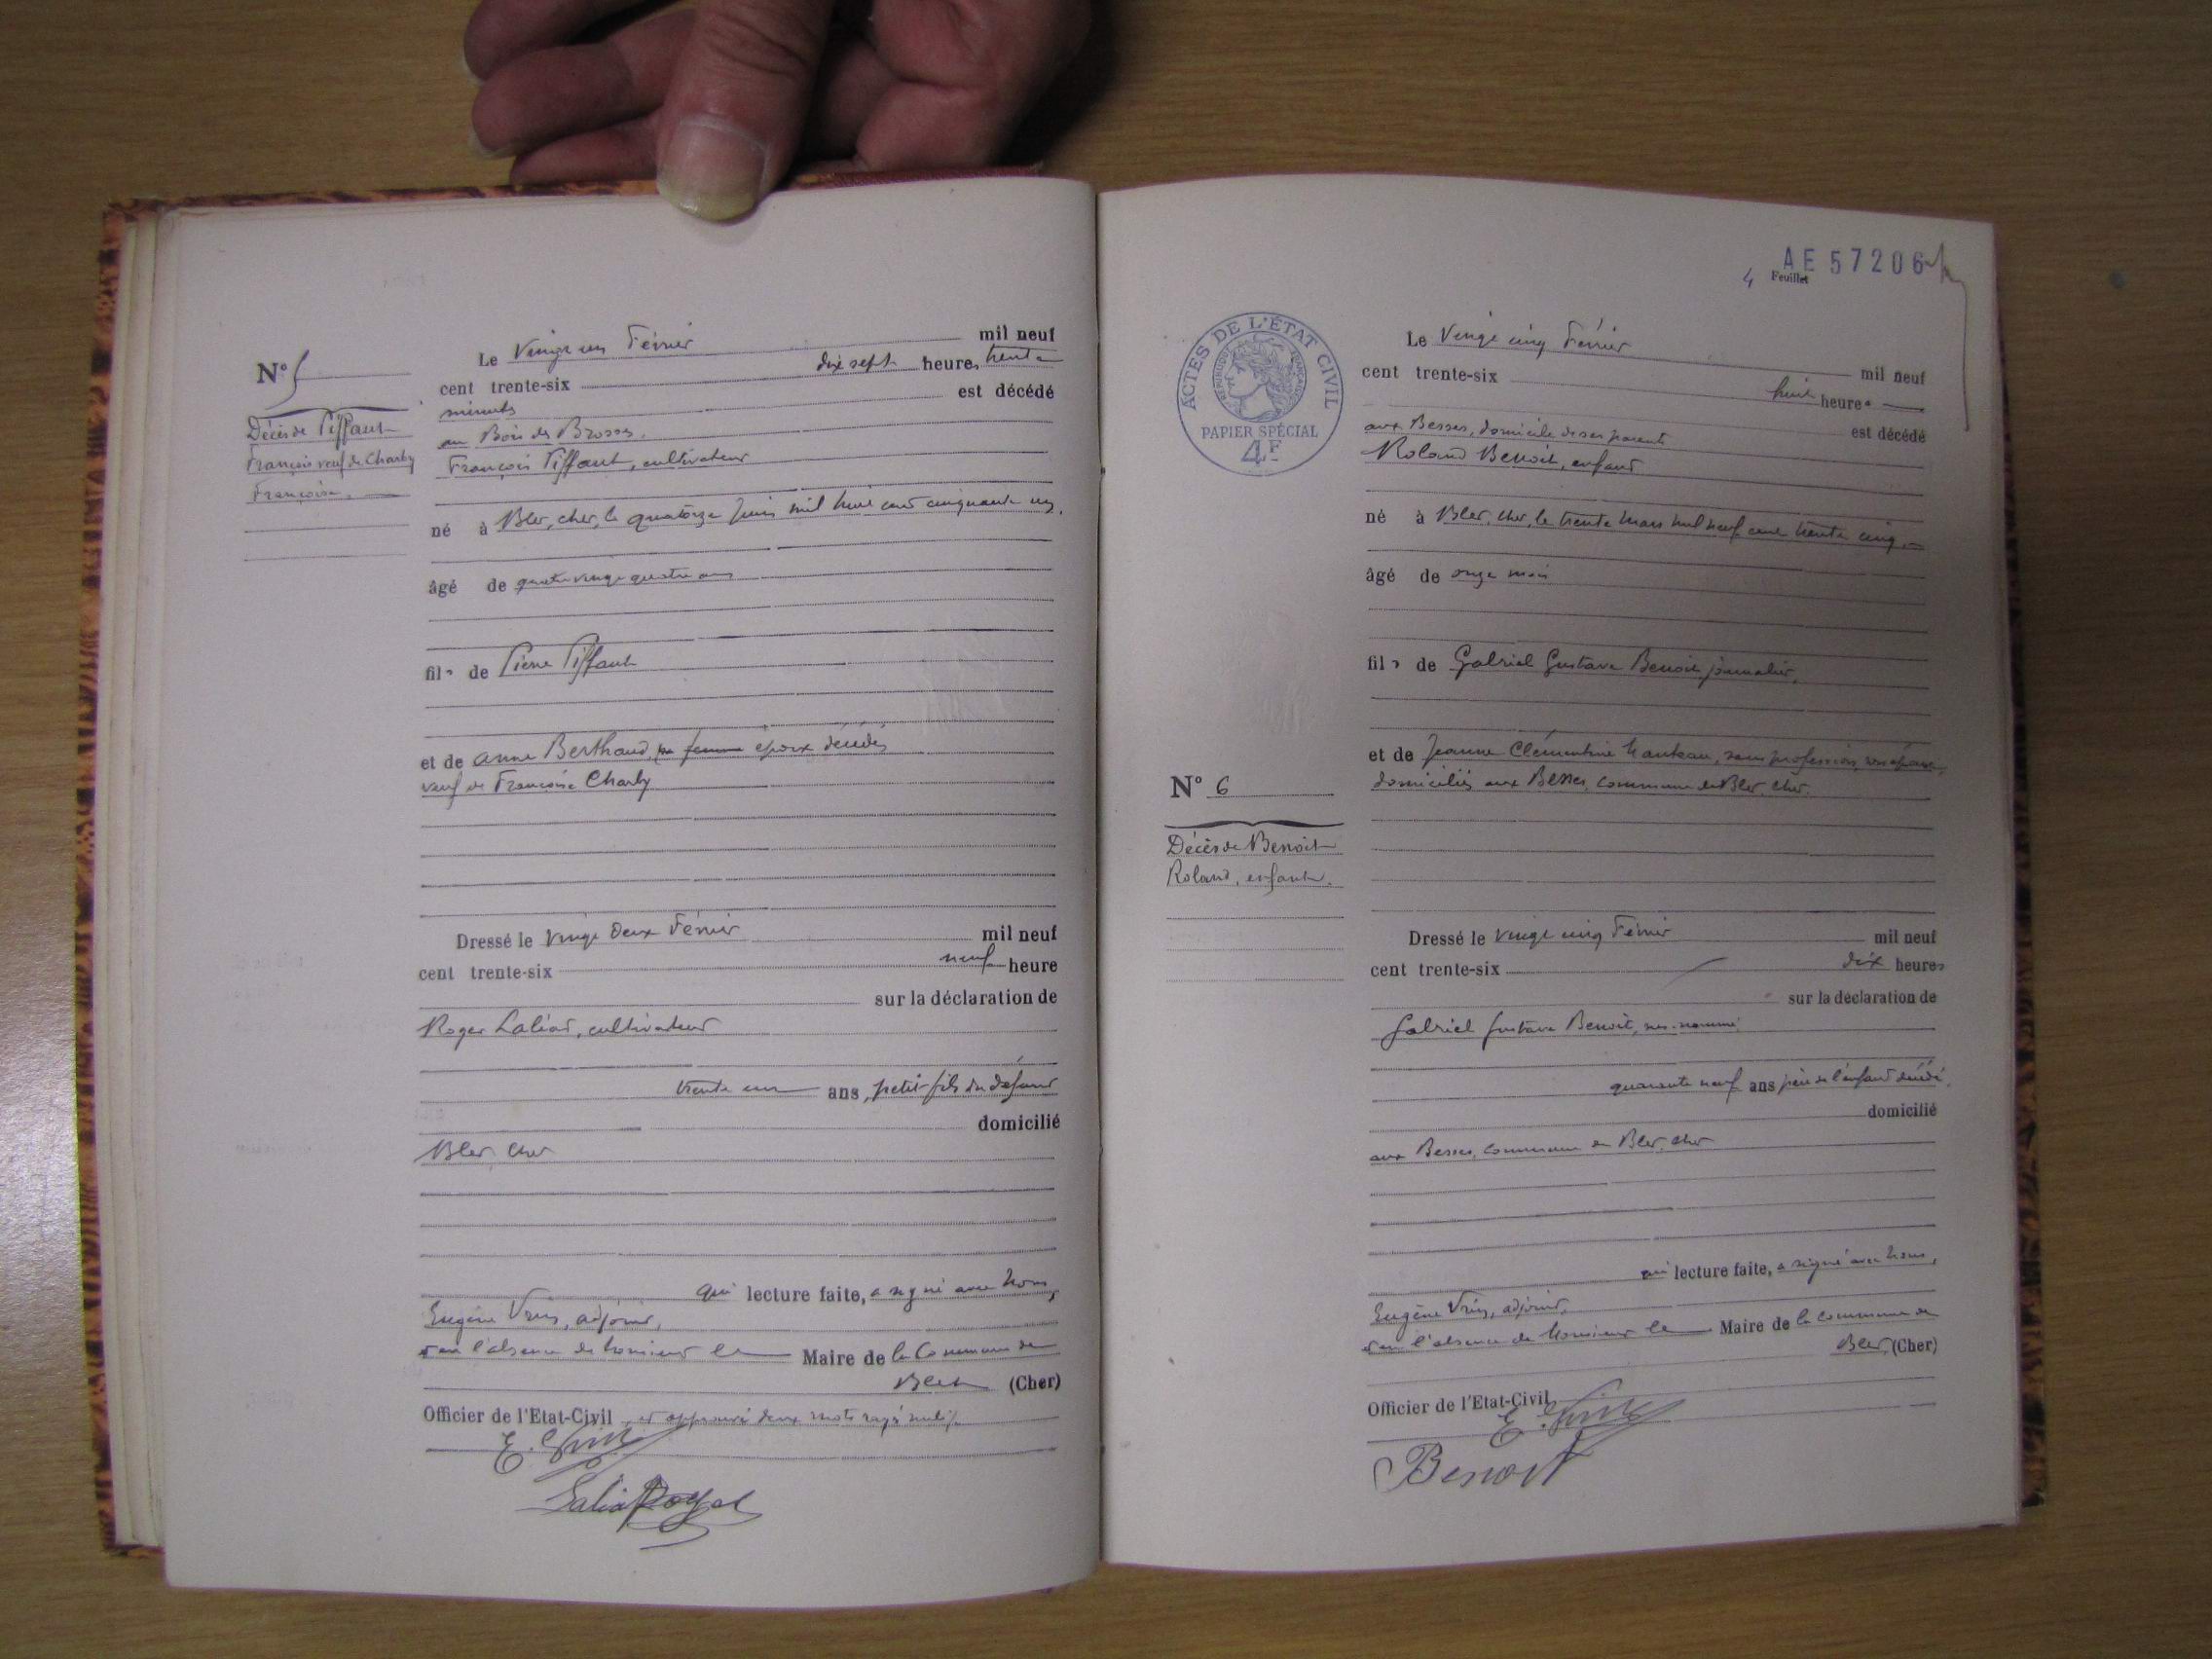 N° 5
Décès de Piffaut
François veuf de Charby
Françoise.
Le Vingt un Février mil neuf
cent trente-six dix sept heures trente
minutes est décédé
au Bois des Brosses,
François Piffaut, cultivateur
né à Blet, Cher, le quatorze juin mil huit cent cinquante un,
âgé de quatre vingt quatre ans
fils de Pierre Piffaut
et de Anne Berthaud, sa femme époux décédés
veuf de Françoise Charby
Dressé le vingt deux Février mil neuf
cent trente-six neuf heure
sur la déclaration de
Roger Laliat, cultivateur
trente un ans, petit-fils du défunt
domicilié
Blet, Cher
qui lecture faite, a signé avec Nous,
Eugène adjoint,
en l'absence de Monsieur le Maire de la Commune de
Blet (Cher)
Officier de l'Etat-Civil, et approuvé deux mots rayés nuls
Laliat Roger
AE 57206
4 Feuillet
ACTES DE L'ÉTAT CIVIL
RÉPUBLIQUE FRANÇAISE
PAPIER SPÉCIAL
4F
N° 6
Décès de Benoit
Roland, enfant.
Le Vingt cinq Février mil neuf
cent trente-six huit heures
est décédé
aux Besses, domicile de ses parents
Roland Benoit, enfant
né à Blet, Cher, le trente Mars mil neuf cent trente cinq
âgé de onze mois
fils de Gabriel Gustave Benoit, journalier,
et de Jeanne Clémentine sans profession, son épouse,
domiciliés aux Besses, commune de Blet, Cher.
Dressé le vingt cinq Février mil neuf
cent trente-six dix heures
sur la déclaration de
Gabriel Gustave Benoit, sus-nommé
quarante neuf ans père de l'enfant décédé,
domicilié
aux Besses, commune de Blet, Cher
qui lecture faite, a signé avec Nous,
Eugène adjoint,
en l'absence de Monsieur le Maire de la commune de
Blet (Cher)
Officier de l'Etat-Civil
Benoit